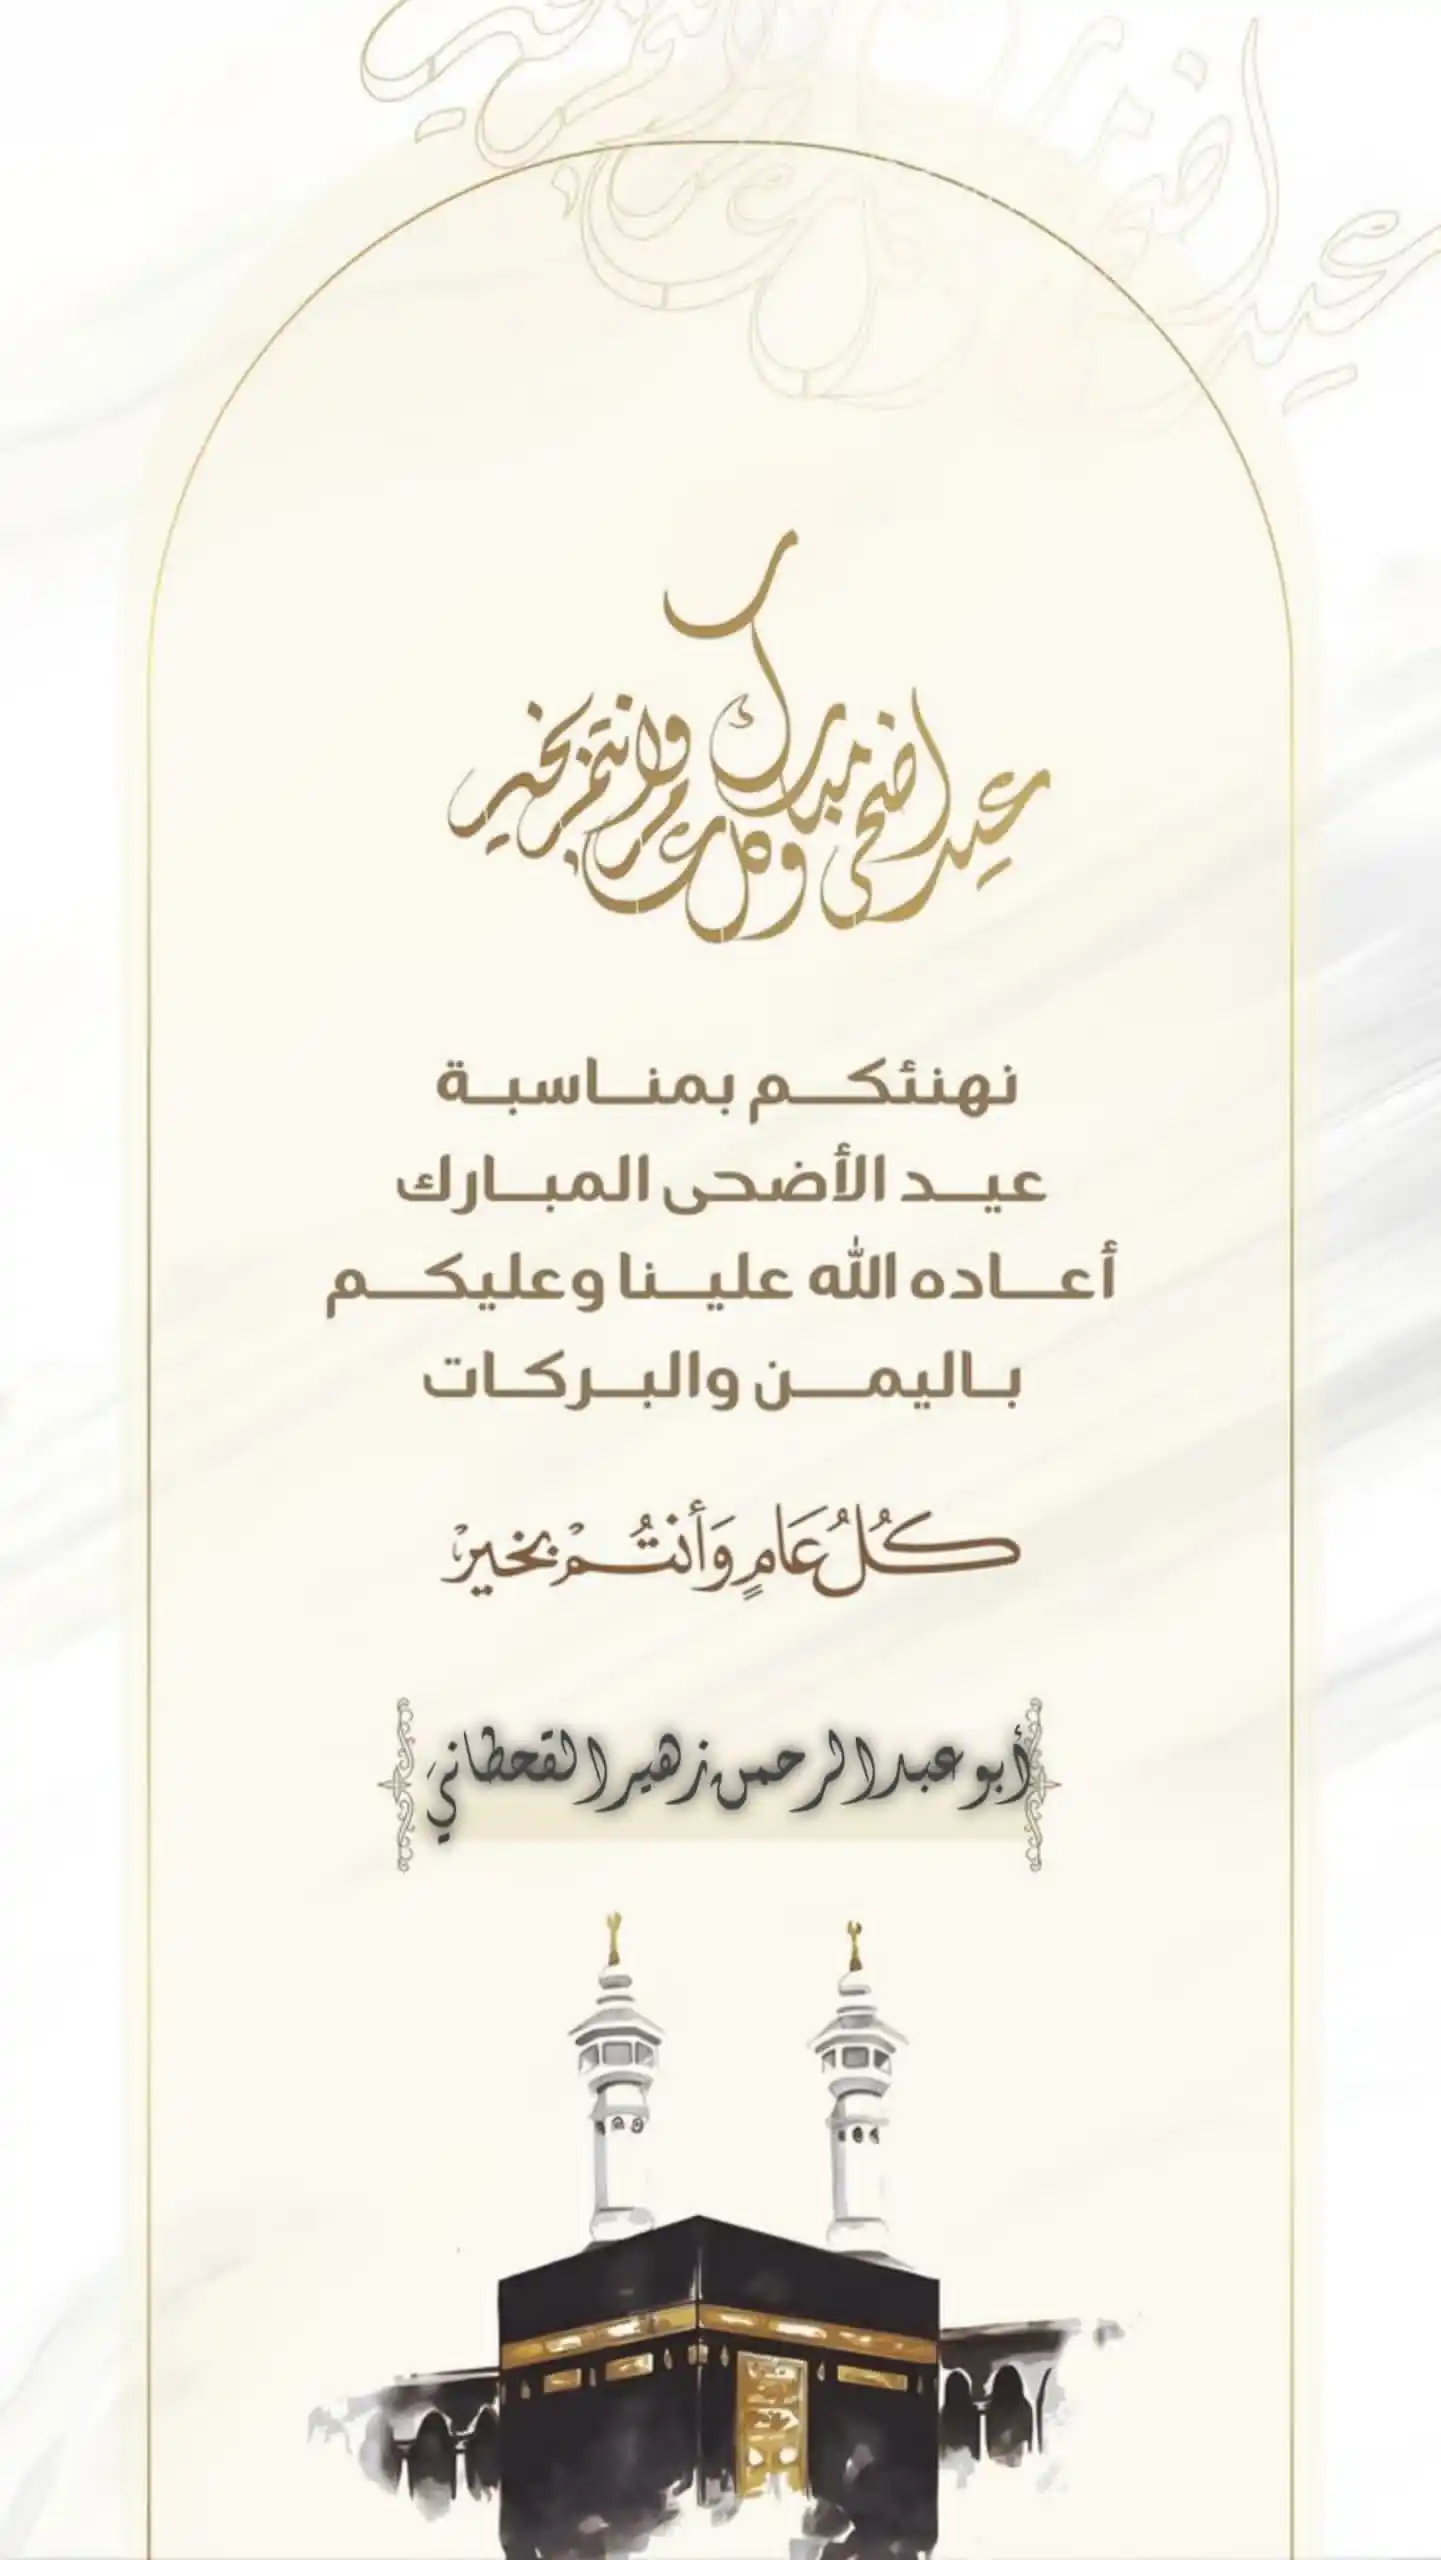 عيد اضحى مبارك
وكل عام وانتم بخير
نهنئكم بمناسبة
عيد الأضحى المبارك
أعاده الله علينا وعليكم
باليمن والبركات
كُلُ عَامٍ وَأنتُمْ بخيرْ
أبو عبدالرحمن زهير القحطاني